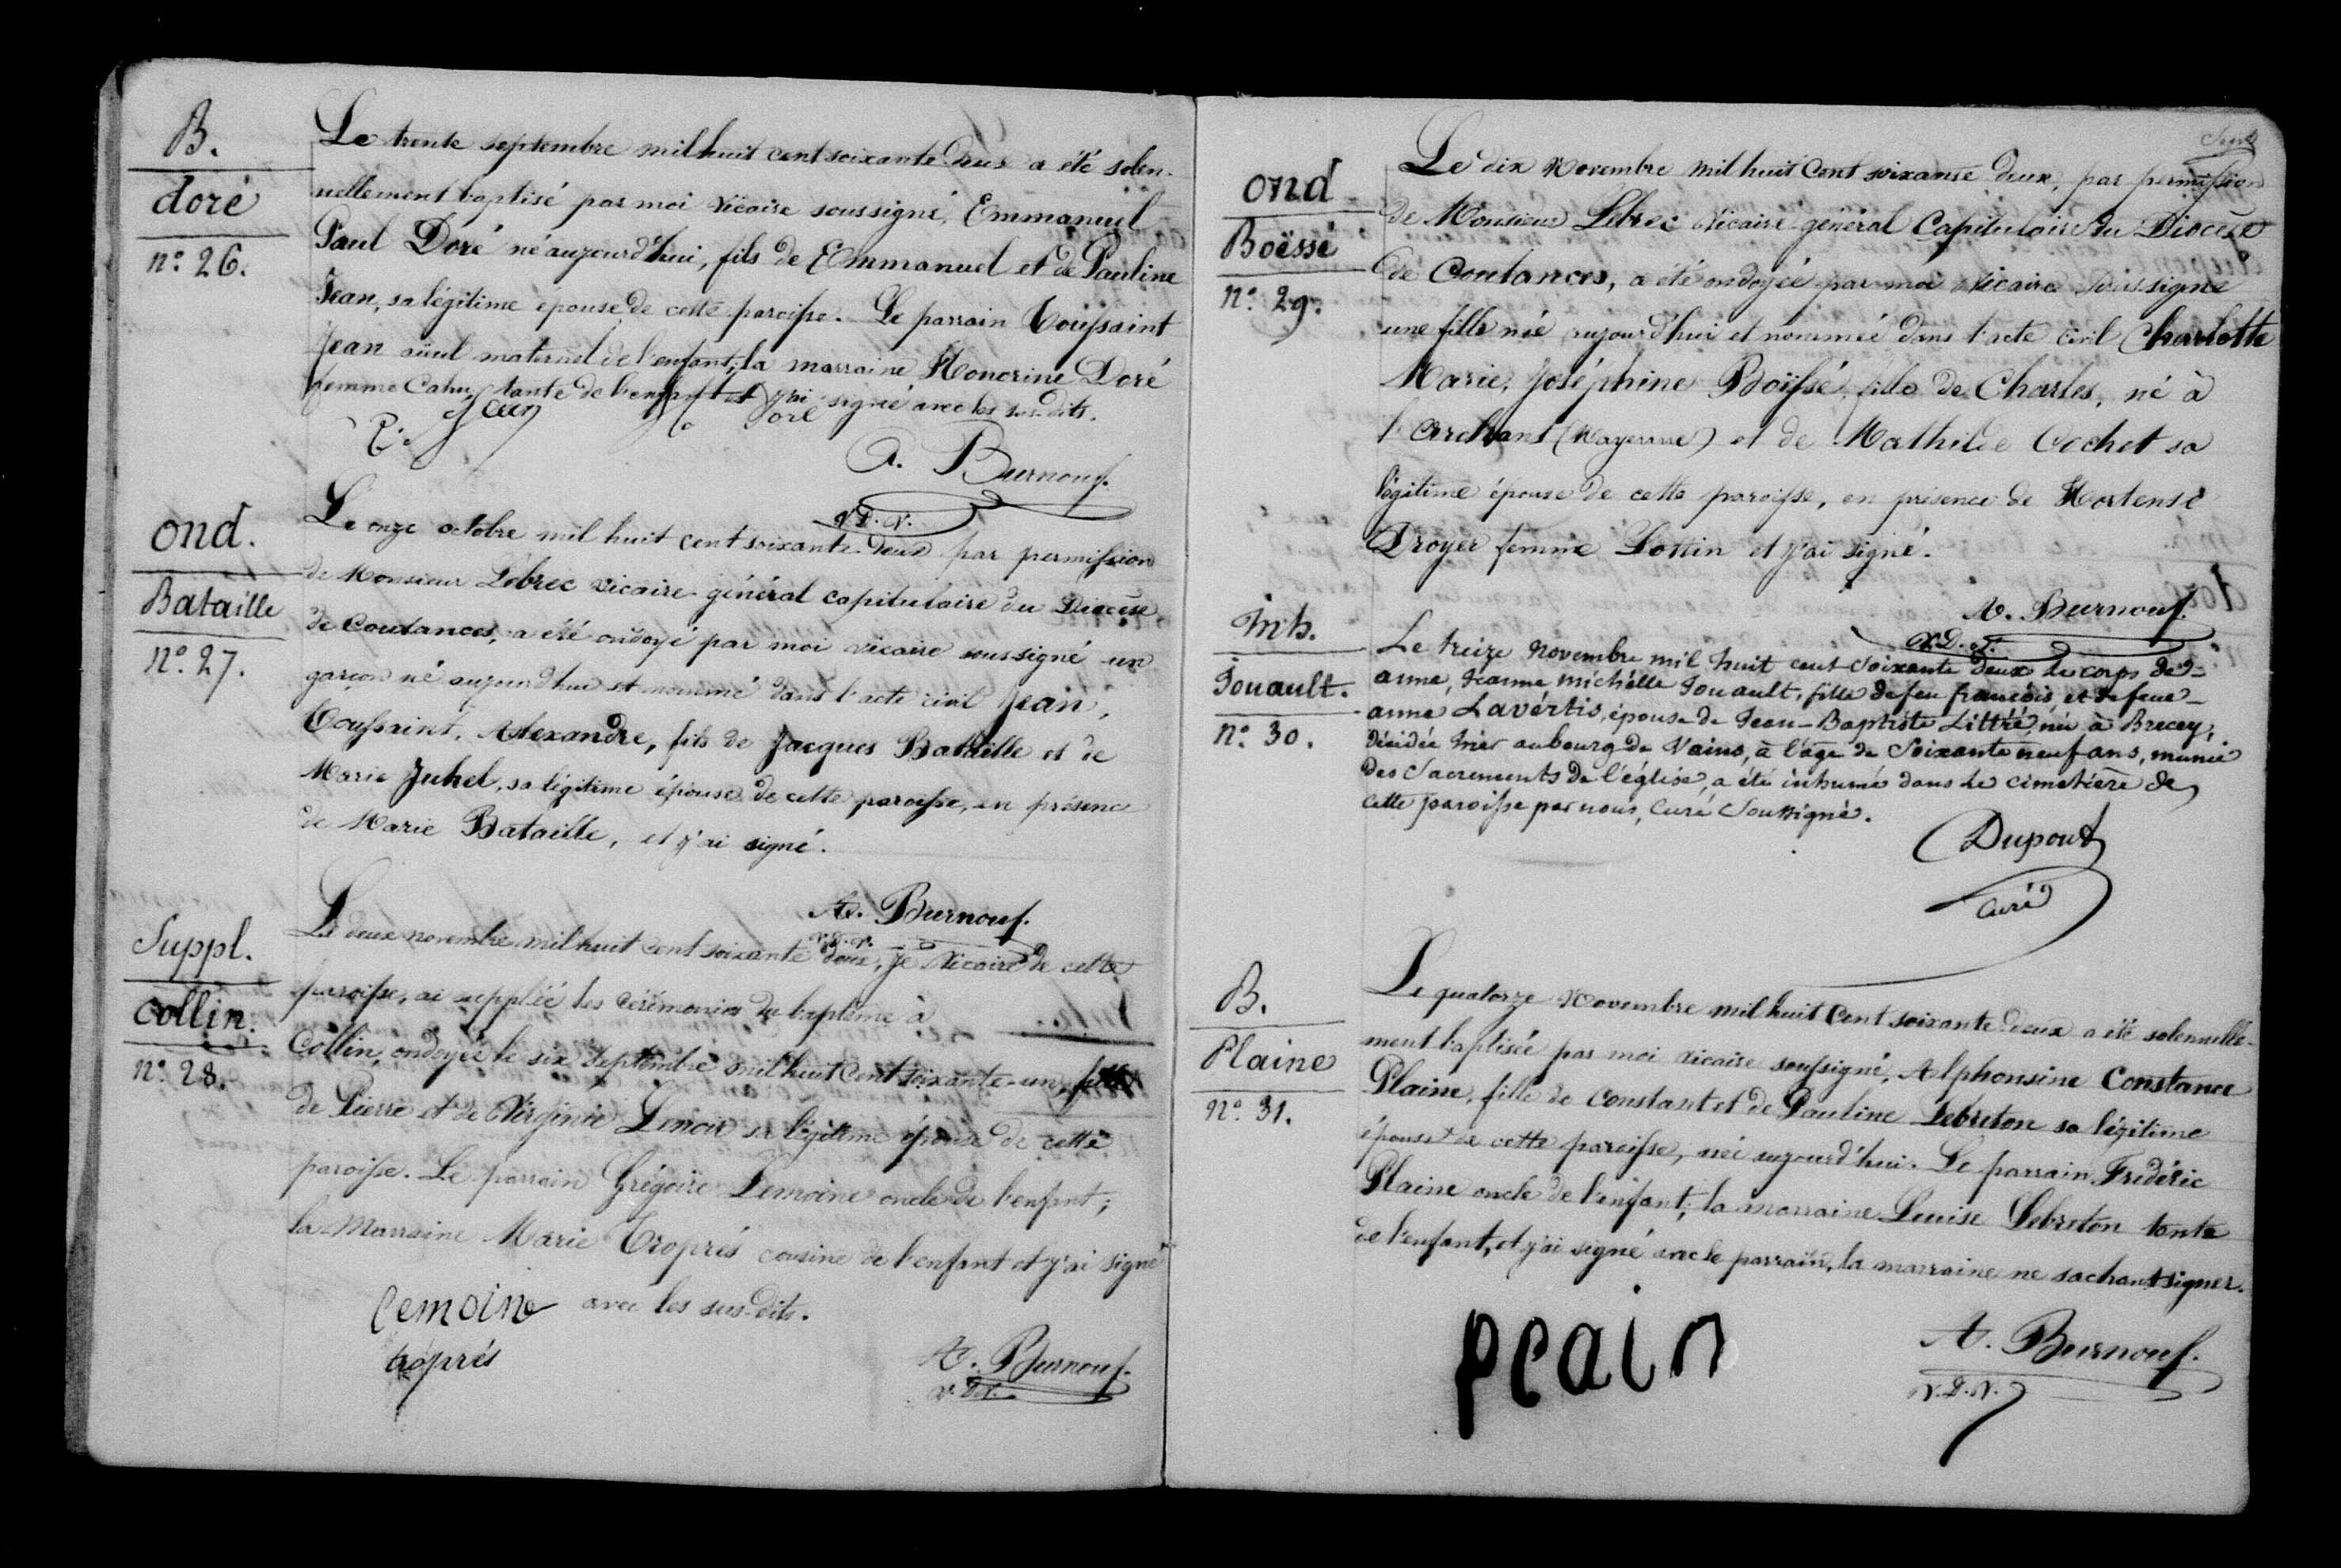 B.
doré
n.o 26.
Le trente septembre mil huit cent soixante deux a été solen-
nellement baptisé par moi vicaire soussigné, Emmanuel
Paul Doré né aujourd'hui, fils de Emmanuel et de Pauline
Jean, sa légitime épouse de cette paroisse. Le parrain Toussaint
Jean aïeul maternel de l'enfant; la marraine Honorine Doré
femme Cahu, tante de l'enfant et j'ai signé avec les sus-dits.
Jean
Doré
A. Burnouf.
v.D.v.
ond.
Bataille
n.o 27.
Le onze octobre mil huit cent soixante-deux par permission
de Monsieur Lebrec vicaire-général capitulaire du Diocèse
de Coutances, a été ondoyé par moi vicaire soussigné un
garçon né aujourd'hui et nommé dans l'acte civil Jean,
Toussaint, Alexandre, fils de Jacques Bataille et de
Marie Juhel, sa légitime épouse de cette paroisse, en présence
de Marie Bataille, et j'ai signé.
A. Burnouf.
v.D.v.
Suppl.
Collin.
n.o 28.
Le deux novembre mil huit cent soixante deux, je vicaire de cette
paroisse, ai suppléé les cérémonies du baptême à
Collin, ondoyée le six septembre mil huit cent soixante-un,
de Pierre et de Virginie Lenoir sa légitime épouse de cette
paroisse. Le parrain Grégoire Lemoine oncle de l'enfant;
la Marraine Marie Troprés cousine de l'enfant et j'ai signé
avec les sus-dits.
Lemoine
tróprés
A. Burnouf.
v.D.v.
ond
Boëssé
n.o 29.
Le dix Novembre mil huit Cent soixante deux, par permission
de Monsieur Lebrec Vicaire-général Capitulaire du Diocèse
de Coutances, a été ondoyée par moi vicaire soussigné
une fille née aujourd'hui et nommée dans l'acte civil Charlotte
Marie, Joséphine Boëssé, fille de Charles, né à
(Mayenne) et de Mathilde Cochet sa
légitime épouse de cette paroisse, en présence de Hortense
Droyer femme Lottin et j'ai signé.
A. Burnouf.
v.D.v.
Inh.
Jouault.
n.o 30.
Le treize novembre mil huit cent soixante deux le corps de
anne, Jeanne Michelle Jouault, fille de feu françois et de feue
anne Lavértis, épouse de Jean-Baptiste Littré, née à Brecey,
décédée hier au bourg de Vains, à l'âge de soixante neuf ans, munie
des Sacrements de l'église, a été inhumé dans le cimetière de
cette paroisse par nous, Curé Soussigné.
Dupont
Curé
B.
Plaine
n.o 31.
Le quatorze Novembre mil huit Cent soixante deux a été solennelle-
ment baptisée par moi vicaire soussigné, Alphonsine Constance
Plaine, fille de Constant et de Pauline Lebreton sa légitime
épouse de cette paroisse, née aujourd'hui. Le parrain Frédéric
Plaine oncle de l'enfant; la marraine Louise Lebreton tante
de l'enfant, et j'ai signé avec le parrain, la marraine ne sachant signer.
plain
A. Burnouf.
v.D.v.